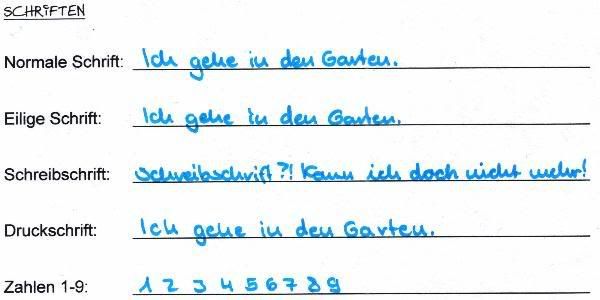 SCHRIFTEN
Normale Schrift: Ich gehe in den Garten.
Eilige Schrift: Ich gehe in den Garten.
Schreibschrift: Schreibschrift?! Kann ich doch nicht mehr!
Druckschrift: Ich gehe in den Garten.
Zahlen 1-9: 1 2 3 4 5 6 7 8 9